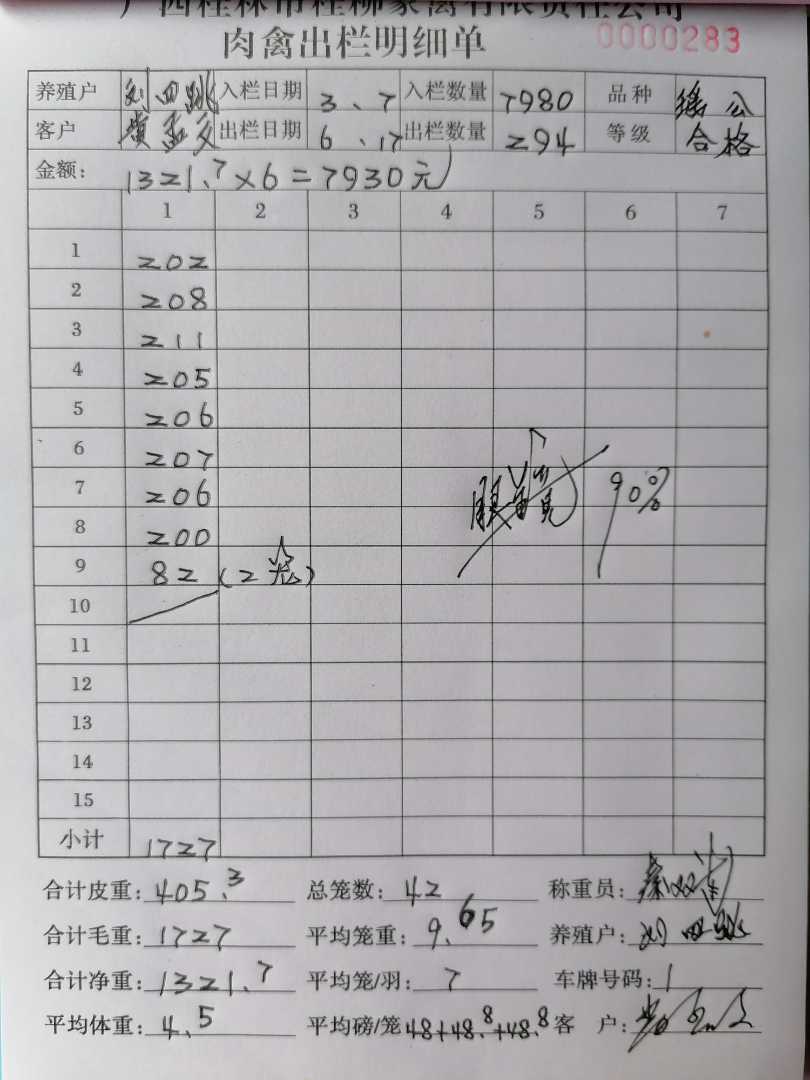 广西桂林市桂柳家禽有限责任公司
肉禽出栏明细单 0000283
养殖户 刘四跳 入栏日期 3、7 入栏数量 7980 品种 瑶公
客户 黄孟交 出栏日期 6、17 出栏数量 294 等级 合格
金额： 1321.7×6=7930元
1 2 3 4 5 6 7
1 202
2 208
3 211
4 205
5 206
6 207
7 206 90%
8 200
9 82 (2笼)
10
11
12
13
14
15
小计 1727
合计皮重：405.3 总笼数：42 称重员：
合计毛重：1727 平均笼重：9.65 养殖户：刘四跳
合计净重：1321.7 平均笼/羽：7 车牌号码：1
平均体重：4.5 平均磅/笼 48+48.8+48.8 客 户：